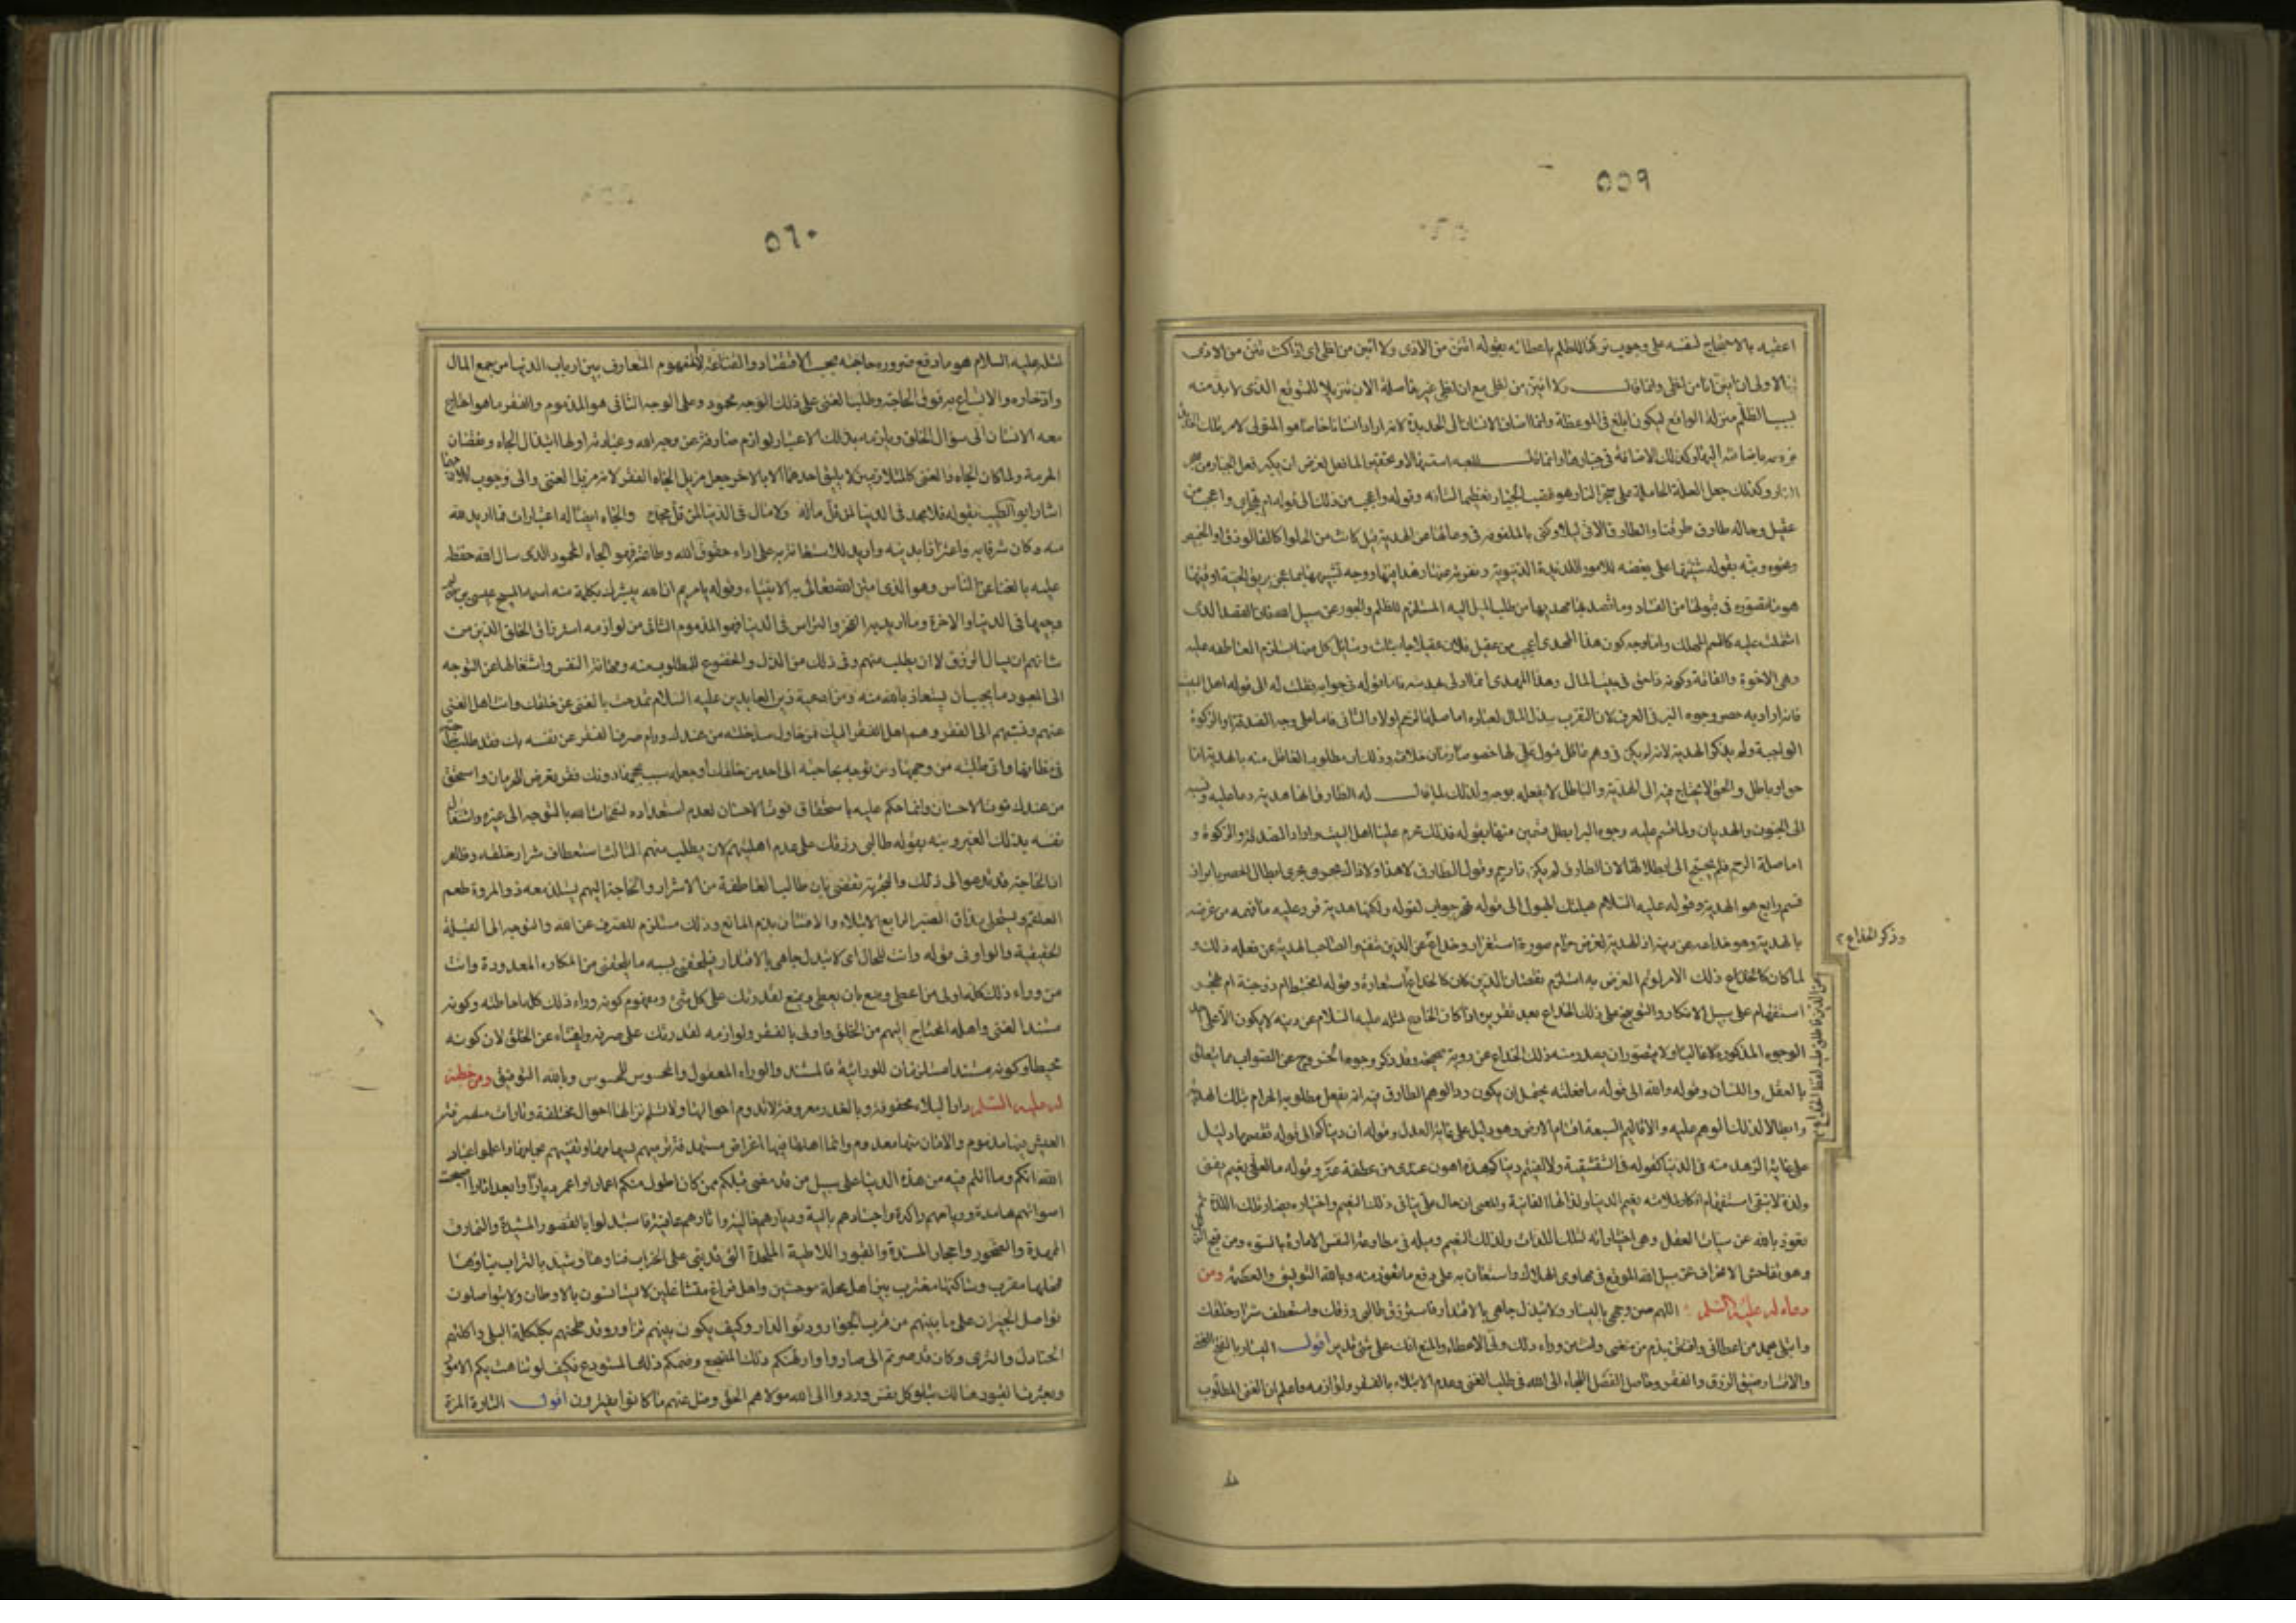 ٥٥٩
اعقبه بالاحتجاج لنفسه على وجوب تركه للظلم باعطائه بقوله اتئن من الاذى ولا ائن من لظى اى اذا كنت تئن من الاذى
ولا ائن من لظى مع ان لظى غير حاصلة الان تنزيلا للمتوقع الذى لا بد منه
بسبب الظلم منزلة الواقع ليكون ابلغ فى الموعظة وانما اضاف الانسان الى الحديدة لانه اراد انسانا خاصا هو المتولى لامر تلك الحديدة
وكذلك الاضافة فى جبارها وانما قال للعبه استسهالا وتحقيرا لما فعل لغرض ان يكبر فعل الجبار من سجر
النار وكذلك جعل العلة الحاملة على سجر النار هو غضب الجبار تعظيما لشانه وقوله واعجب من ذلك الى قوله ام تهجر اى واعجب من
عقيل وحاله طارق طرقنا والطارق الاتى ليلا وكنى بالملفوفة فى وعائها عن الهدية قيل كانت من الحلوا كالفالوذق او الخبيص
ونحوه ونبه بقوله شنئتها على بغضه للامور اللذيذة الدنيوية ونفوره عنها زهدا فيها ووجه تشبيهها بما عجن بريق الحية او قيئها
هو ما تصوره فى قبولها من الفساد وما قصد بها مهديها من طلب الميل اليه المستلزم للظلم والجور عن سبيل الله فان القصد الذى
اشتملت عليه كالسم المهلك واما وجه كون هذا المهدى اعجب من عقيل فلان عقيلا جاء بثلث وسائل كل منها يستلزم العاطفة عليه
وهى الاخوة والفاقة وكونه ذا حق فى بيت المال وهذا المهدى انما ادلى بهديته فاما قوله فى جوابه فقلت له الى قوله اهل البيت
فانه اراد به حصر وجوه البر فى العرف لان التقرب ببذل المال لعباده اما صلة لرحم اولا والثانى فاما على وجه الصدقة او الزكوة
الواجبة ولم يذكر الهدية لانه لم يكن فى وهم عاقل قبول على لها خصوصا زمان خلافته وذلك ان مطلوب العاقل منه بالهدية اما
حق او باطل والحق لا يحتاج فيه الى الهدية والباطل لا يفعله بوجه ولذلك لما قال له الطارق انها هدية دعا عليه ونسبه
الى الجنون والهذيان ولما قسم عليه وجوه البر ابطل قسمين منها بقوله فذلك محرم علينا اهل البيت واراد الصدقة والزكوة و
اما صلة الرحم فلم يحتج الى ابطالها لان الطارق لم يكن ذا رحم وقول الطارق لا هذا ولا ذاك يجرى مجرى ابطال الحصر بابراز
قسم رابع هو الهدية وقوله عليه السلام هبلتك الهبول الى قوله تهجر جواب لقوله ولكنها هدية قرر عليه ما فهمه من غرضه
بالهدية وهو خداعه عن دينه اذ الهدية لغرض حرام صورة استغرار وخداع عن الدين تنفيرا لصاحب الهدية عن فعله ذلك و
وذكر الخداع
لما كان كالخداع ذلك الامر لو تم الغرض به استلزم نقصان الدين كان كالخداع استعارة وقوله امختبط ام ذو جنة ام تهجر
استفهام على سبيل الانكار والتوبيخ على ذلك الخداع بعد تقريره اذ كان الخادع لمثله عليه السلام عن دينه لا يكون الا على احد
الوجوه المذكورة غالبا ولا يتصور ان يصدر منه ذلك الخداع عن روية صحيحة وقد ذكر وجوه الخروج عن الصواب مما يتعلق
بالعقل واللسان وقوله والله الى قوله ما فعلته يحتمل ان يكون ردا لوهم الطارق فيه انه يفعل مطلوبه الحرام بتلك الهدية
وابطالا لذلك الوهم عليه والاقاليم السبعة اقسام الارض وهو دليل على غاية العدل وقوله ان دنياكم الى قوله تقضمها دليل
على غاية الزهد منه فى الدنيا كقوله فى الشقشقية ولالفيتم دنياكم هذه اهون عندى من عفطة عنز وقوله ما لعلى ونعيم يفنى
ولذة لا تبقى استفهام انكار لملائمته نعيم الدنيا ولذاتها الفانية والمعنى ان حال على ينافى ذلك النعيم واختياره
نعوذ بالله من سبات العقل وهى اختياراته لتلك اللذات ولذلك النعيم وميله فى مطاوعة النفس الامارة بالسوء ومن قبح الزلل
وهو تفاحش الانحراف عن سبيل الله الموقع فى مهاوى الهلاك واستعان به على دفع ما تعوذ منه وبالله التوفيق والعصمة ومن
دعاء له عليه السلم اللهم صن وجهى باليسار ولا تبذل جاهى بالاقتار فاسترزق طالبى رزقك واستعطف شرار خلقك
وابتلى بحمد من اعطانى وافتتن بذم من منعنى وانت من وراء ذلك ولى الاعطاء والمنع انك على كل شئ قدير اقول اليسار بالفتح الغنى
والاقتار ضيق الرزق والفقر وحاصل الفصل اللجاء الى الله فى طلب الغنى وعدم الابتلاء بالفقر ولوازمه واعلم ان الغنى المطلوب
٥٦٠
لمثله عليه السلام هو ما دفع ضرورة حاجته بحسب الاقتصاد والقناعة لا المفهوم المتعارف بين ارباب الدنيا من جمع المال
وادخاره والاتساع به فوق الحاجة وطلب الغنى على ذلك الوجه محمود وعلى الوجه الثانى هو المذموم والفقر ما هو احتاج
معه الانسان الى سؤال الخلق ويلزمه بذلك الاعتبار لوازم صارفة عن وجه الله وعبادته اولها ابتذال الجاه ونقصان
الحرمة ولما كان الجاه والغنى كالمتلازمين لا يليق احدهما الا بالاخر جعل مزيل الجاه الفقر لانه مزيل الغنى والى وجوب تلازمهما
اشار ابو الطيب بقوله فلا مجد فى الدنيا لمن قل ماله ولا مال فى الدنيا لمن قل مجده والجاه ايضا له اعتبارات فما اريد به الله
منه وكان شرفا به واعتزازا بدينه واريد للاستعانة به على اداء حقوق الله وطاعته فهو الجاه المحمود الذى سال الله حفظه
عليه بالغنا عن الناس وهو الذى امتن الله تعالى به الانبياء وقوله يا مريم ان الله يبشرك بكلمة منه اسمه المسيح عيسى بن مريم
وجيها فى الدنيا والاخرة وما اريد به الفخر والتراس فى الدنيا فهو المذموم الثانى من لوازمه استرزاق الخلق الذين من
شانهم ان يسال الرزق لا ان يطلب منهم وفى ذلك من الذل والخضوع للمطلوب منه ومهانة النفس واشتغالها عن التوجه
الى المعبود ما يجب ان يستعاذ بالله منه ومن ادعية زين العابدين عليه السلام تمدحت بالغنى عن خلقك وانت اهل الغنى
عنهم ونسبتهم الى الفقر وهم اهل الفقر اليك فمن حاول سد خلته من عندك ورام صرف الفقر عن نفسه بك فقد طلب حاجته
فى مظانها واتى طلبته من وجهها ومن توجه بحاجته الى احد من خلقك او جعله سبب نجحها دونك فقد تعرض للحرمان واستحق
من عندك فوت الاحسان وانما حكم عليه باستحقاق فوت الاحسان لعدم استعداده لنفحات الله بالتوجه الى غيره واشتغال
نفسه بذلك الغير ونبه بقوله طالبى رزقك على عدم اهليتهم لان يطلب منهم الثالث استعطاف شرار خلقه وظاهر
ان الحاجة قد تدعو الى ذلك والتجربة تقضى بان طالب العاطفة من الاشرار والحاجة اليهم يستلذ معه ذو المروة طعم
العلقم ويستحلى مذاق الصبر الرابع الابتلاء والافتتان بذم المانع وذلك مستلزم للصرف عن الله والتوجه الى القبلة
الحقيقية والواو فى قوله وانت للحال اى لا تبذل جاهى بالاقتار فيلحقنى بسببه ما يلحقنى من المكاره المعدودة وانت
من وراء ذلك كله اولى من اعطى ومنع بان يعطى ويمنع لقدرتك على كل شئ ومفهوم كونه وراء ذلك كله احاطته وكونه
مستندا لغنى واهله المحتاج اليهم من الخلق واولى بالفقر ولوازمه لقدرتك على صرفه واغناء عن الخلق لان كونه
محيطا وكونه مستندا مستلزمان للورائية فالمستند والوراء المعقول والمحسوس للمحسوس وبالله التوفيق ومن خطبة
له عليه السلم دار بالبلاء محفوفة وبالغدر معروفة لا تدوم احوالها ولا تسلم نزالها احوال مختلفة وتارات متصرفة
العيش فيها مذموم والامان منها معدوم وانما اهلها فيها اغراض مستهدفة ترميهم بسهامها وتفنيهم بحمامها واعلموا عباد
الله انكم وما انتم فيه من هذه الدنيا على سبيل من قد مضى قبلكم ممن كان اطول منكم اعمارا واعمر ديارا وابعد اثارا اصبحت
اصواتهم هامدة ورياحهم راكدة واجسادهم بالية وديارهم خالية واثارهم عافية فاستبدلوا بالقصور المشيدة والنمارق
الممهدة والصخور واحجار المسندة والقبور اللاطية الملحدة التى قد بنى على الخراب فناؤها وشيد بالتراب بناؤها
فمحلها مقترب وساكنها مغترب بين اهل محلة موحشين واهل فراغ متشاغلين لا يستانسون بالاوطان ولا يتواصلون
تواصل الجيران على ما بينهم من قرب الجوار ودنو الدار وكيف يكون بينهم تزاور وقد طحنهم بكلكله البلى واكلتهم
الجنادل والثرى وكان قد صرتم الى ما صاروا وارتهنكم ذلك المضجع وضمكم ذلك المستودع فكيف لو تناهت بكم الامور
وبعثرت القبور هنالك تبلو كل نفس وردوا الى الله مولاهم الحق وضل عنهم ما كانوا يفترون اقول التارة المرة